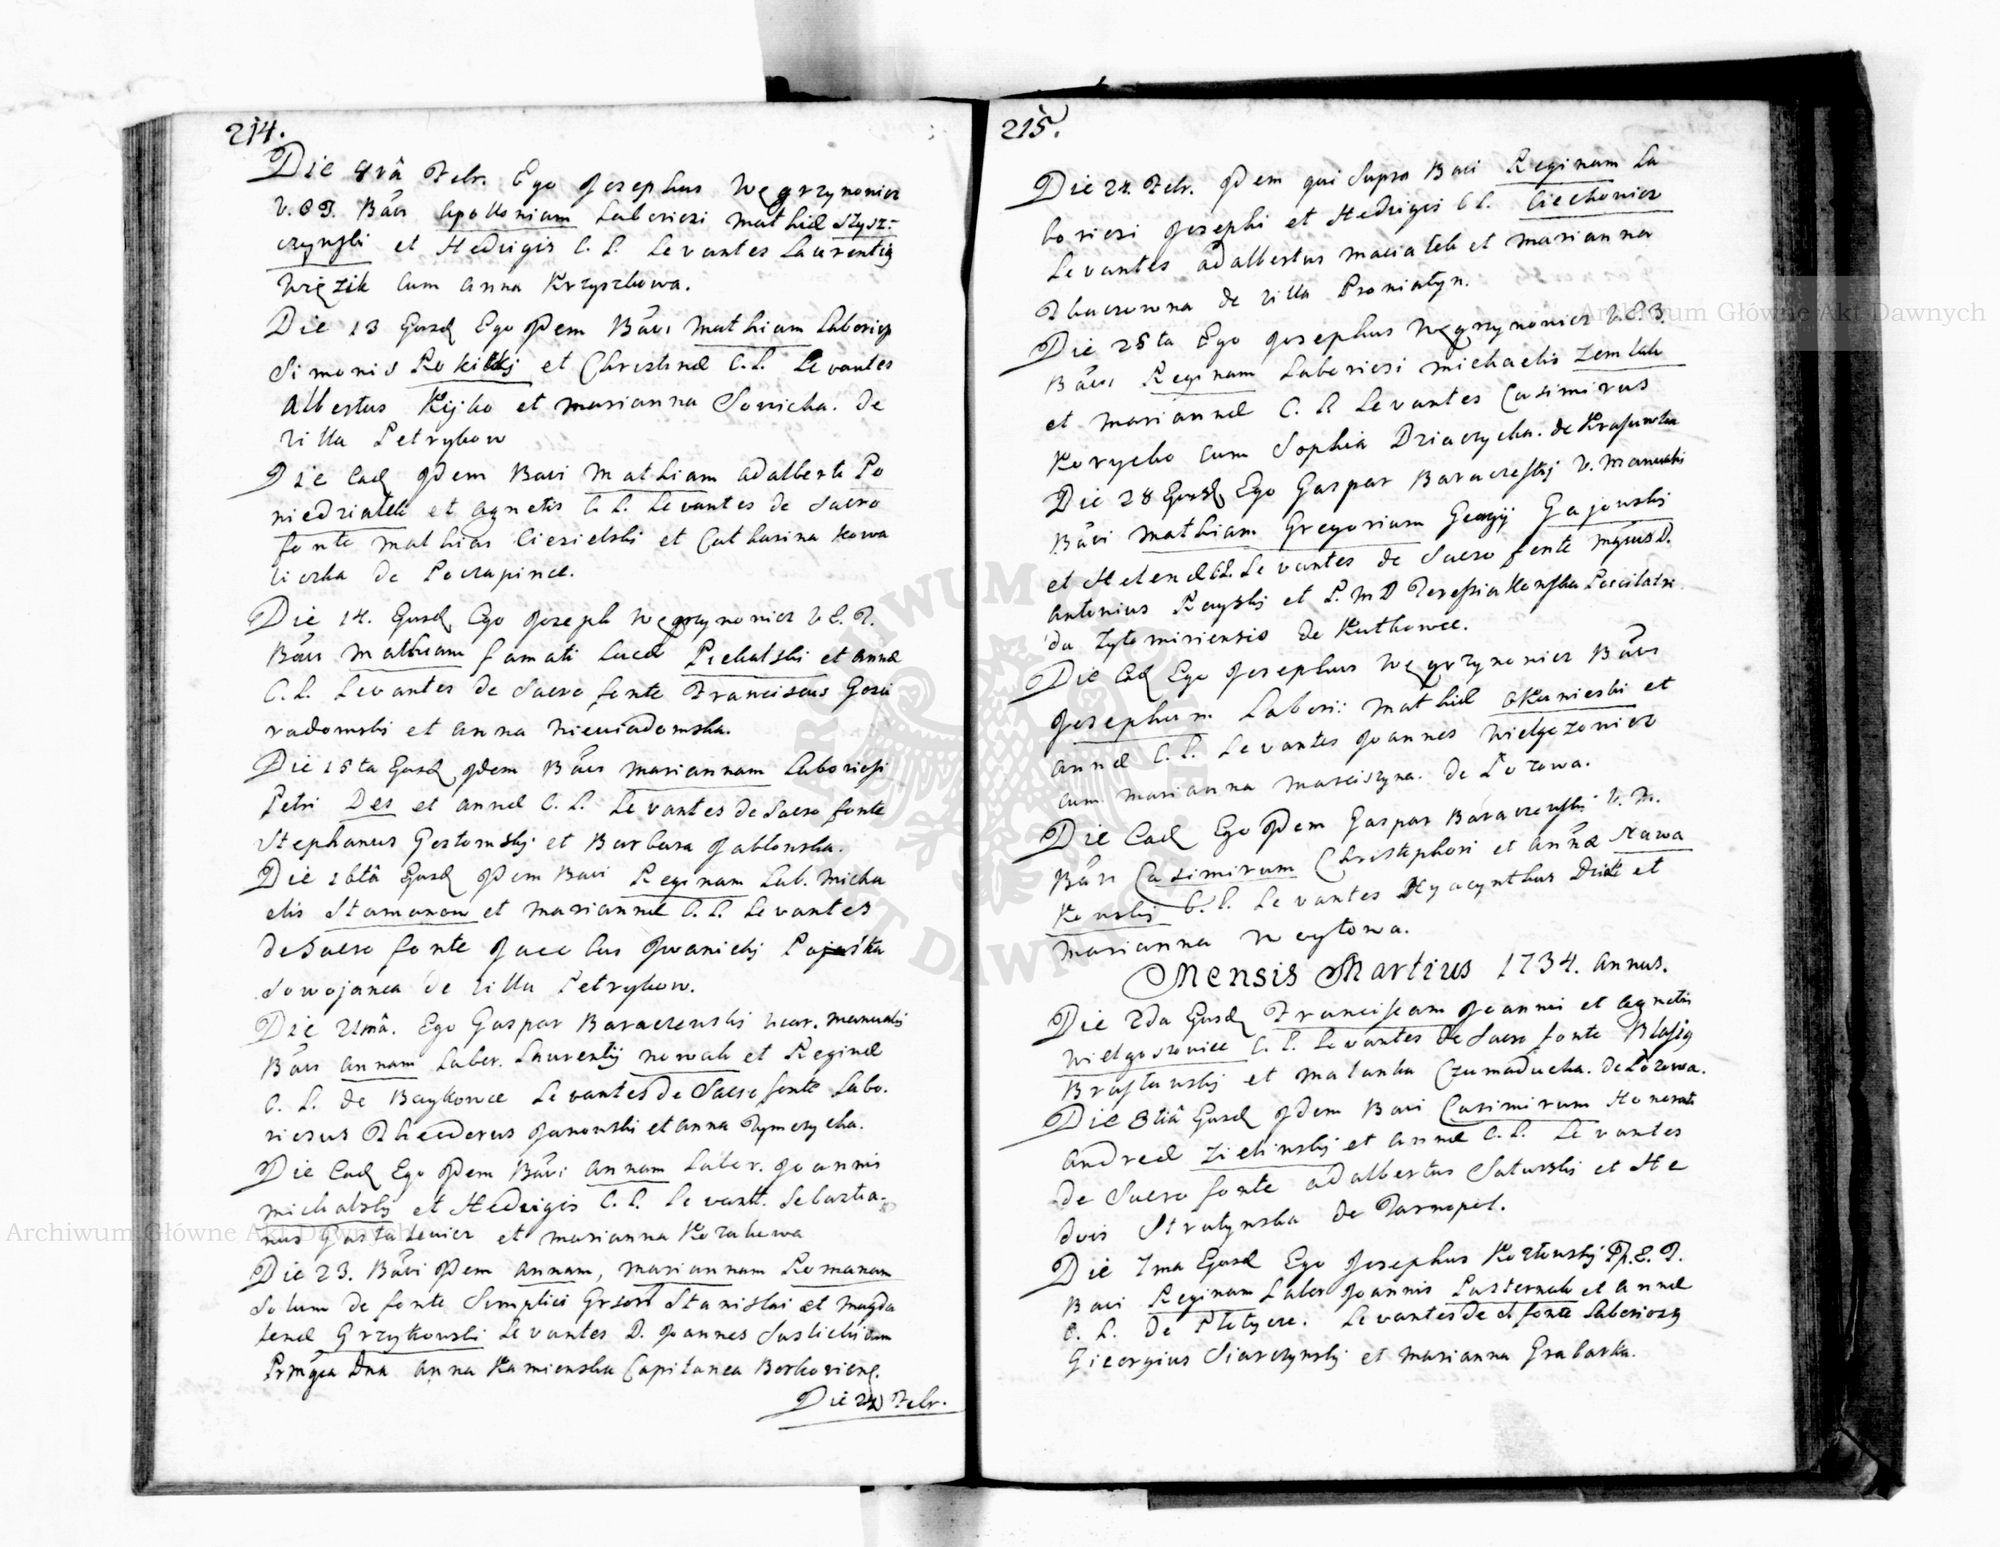 214.
Die 8vâ Febr. Ego Josephus Węgrzynowicz
V. E T. Baûi Apolloniam Laboriosi Mathiæ Szysz-
czynski et Hedvigis C. L. Levantes Laurentiq
Więzik cum Anna Krzyszkowa.
Die 13 Ejusd Ego Idem Bâui Mathiam Laborios
Simonis Rokickij et Christinæ C. L. Levantes
Albertus Kijko et Marianna Sowicha. de
villa Petrykow
Die Ead Idem Bavi Mathiam Adalberti Po
niedziałek et Agnetis C. L. Levantes de Sacro
fonte Mathias Ciesielski et Catharina Kowa
liczka de Poczapince.
Die 14. Ejusd Ego Joseph Węgrzynowicz V E. T.
Bâui Mathiam famati Lucæ Piekalski et Annæ
C. L. Levantes de Sacro fonte Franciscus Gosu
radomski et Anna Niewiadomska.
Die 15ta Ejusd Idem Bâui Mariannam Laboriosi
Petri Des et Annæ C. L. Levantes de Sacro fonte
Stephanus Gostomskj et Barbara Jabłonska.
Die 16tâ Ejusd Idem Bavi Reginam Lab. Micha
elis Stamanow et Mariannæ C. L. Levantes
de Sacro fonte Jacobus Iwanickj Pajaśka
Sowojanca de villa Petrykow.
Die 21mâ. Ego Gaspar Baraczewski Vicar. Manualis
Bâui Annam Labor. Laurentij Nowak et Reginæ
C. L. de Baykowce Levantes de Sacro fonte Labo.
riosus Theoderus Janowski et Anna Tymczycha.
Die Ead Ego Idem Bâvi Annam Labor. Joannis
Michalskj et Hedvigis C. L. Levantt. Sebastia-
nus Gostalewicz et Marianna Kozakowa
Die 23. Bâvi Idem Annam, Mariannam Romanam
Solum de fonte Simplici Grsori Stanislai et Magda
lenæ Grzytkowski Levantes D. Joannes Suslickicum
Prmgca Dna Anna Kamienska Capitanea Borkoviens.
Die 24 Febr.
215.
Die 24. Febr. Idem qui Supra Bavi Reginam La
boriosi Josephi et Hedvigis C L. Ciechowicz
Levantes Adalbertus Maciałek et Marianna
Tkaczowna de villa Proniatyn.
Die 25ta Ego Josephus Węgrzynowicz V. E. T.
Bâui Reginam Laboriosi Michaelis Zemlak
et Mariannæ C. L Levantes Casimirus
Korycko cum Sophia Dziaczycha. de Krasuwka
Die 28 Ejusd Ego Gaspar Baraczeskj V. Manualis
Bâvi Mathiam Gregorium Georgij Gajowskj
et Helenæ C L. Levantes de Sacro fonte Mgśus D.
Antonius Rayskj et P. M D Teressia Konska Pocillatri
da Zytomiriensis de Kutkowce.
Die Ead Ego Josephus Węgrzynowicz Bâui
Josephum Labori: Mathiæ Okuniewski et
Annæ C. L. Levantes Joannes Wielgozowicz
cum Marianna Marciszyna. de Lozowa.
Die Ead Ego Idem Gaspar Baraczewski V. M.
Bâvi Casimirum Christophori et Annæ Stawa
Kowskj C. L. Levantes Hyacynthus Dziak et
Marianna Woytowa.
Mensis Martius 1734. Annus.
Die 2da Ejusd Franciscam Joannis et Agnetis
Wielgoszowicz C. L. Levantes de Sacro fonte Blasiq
Brastawskj et Malanka Czumaducha. de Łozowa.
Die 3tiâ Ejusd Idem Bavi Casimirum Honorati
Andreæ Zielinskj et Annæ C. L. Levantes
de Sacro fonte Adalbertus Saturskj et He
dvis Stratynska de Tarnopol.
Die 7ma Ejusd Ego Josephus Kozłowskj Pp. E. T.
Bavi Reginam Labor Joannis Pasternak et Annæ
C. L. de Płotycze. Levantes de st fonte Laboriosq
Gieorgius Siarczynskj et Marianna Grabarka.
Archiwum Główne Akt Dawnych
Archiwum Główne Akt Dawnych
ARCHIWUM GŁÓWNE AKT DAWNYCH